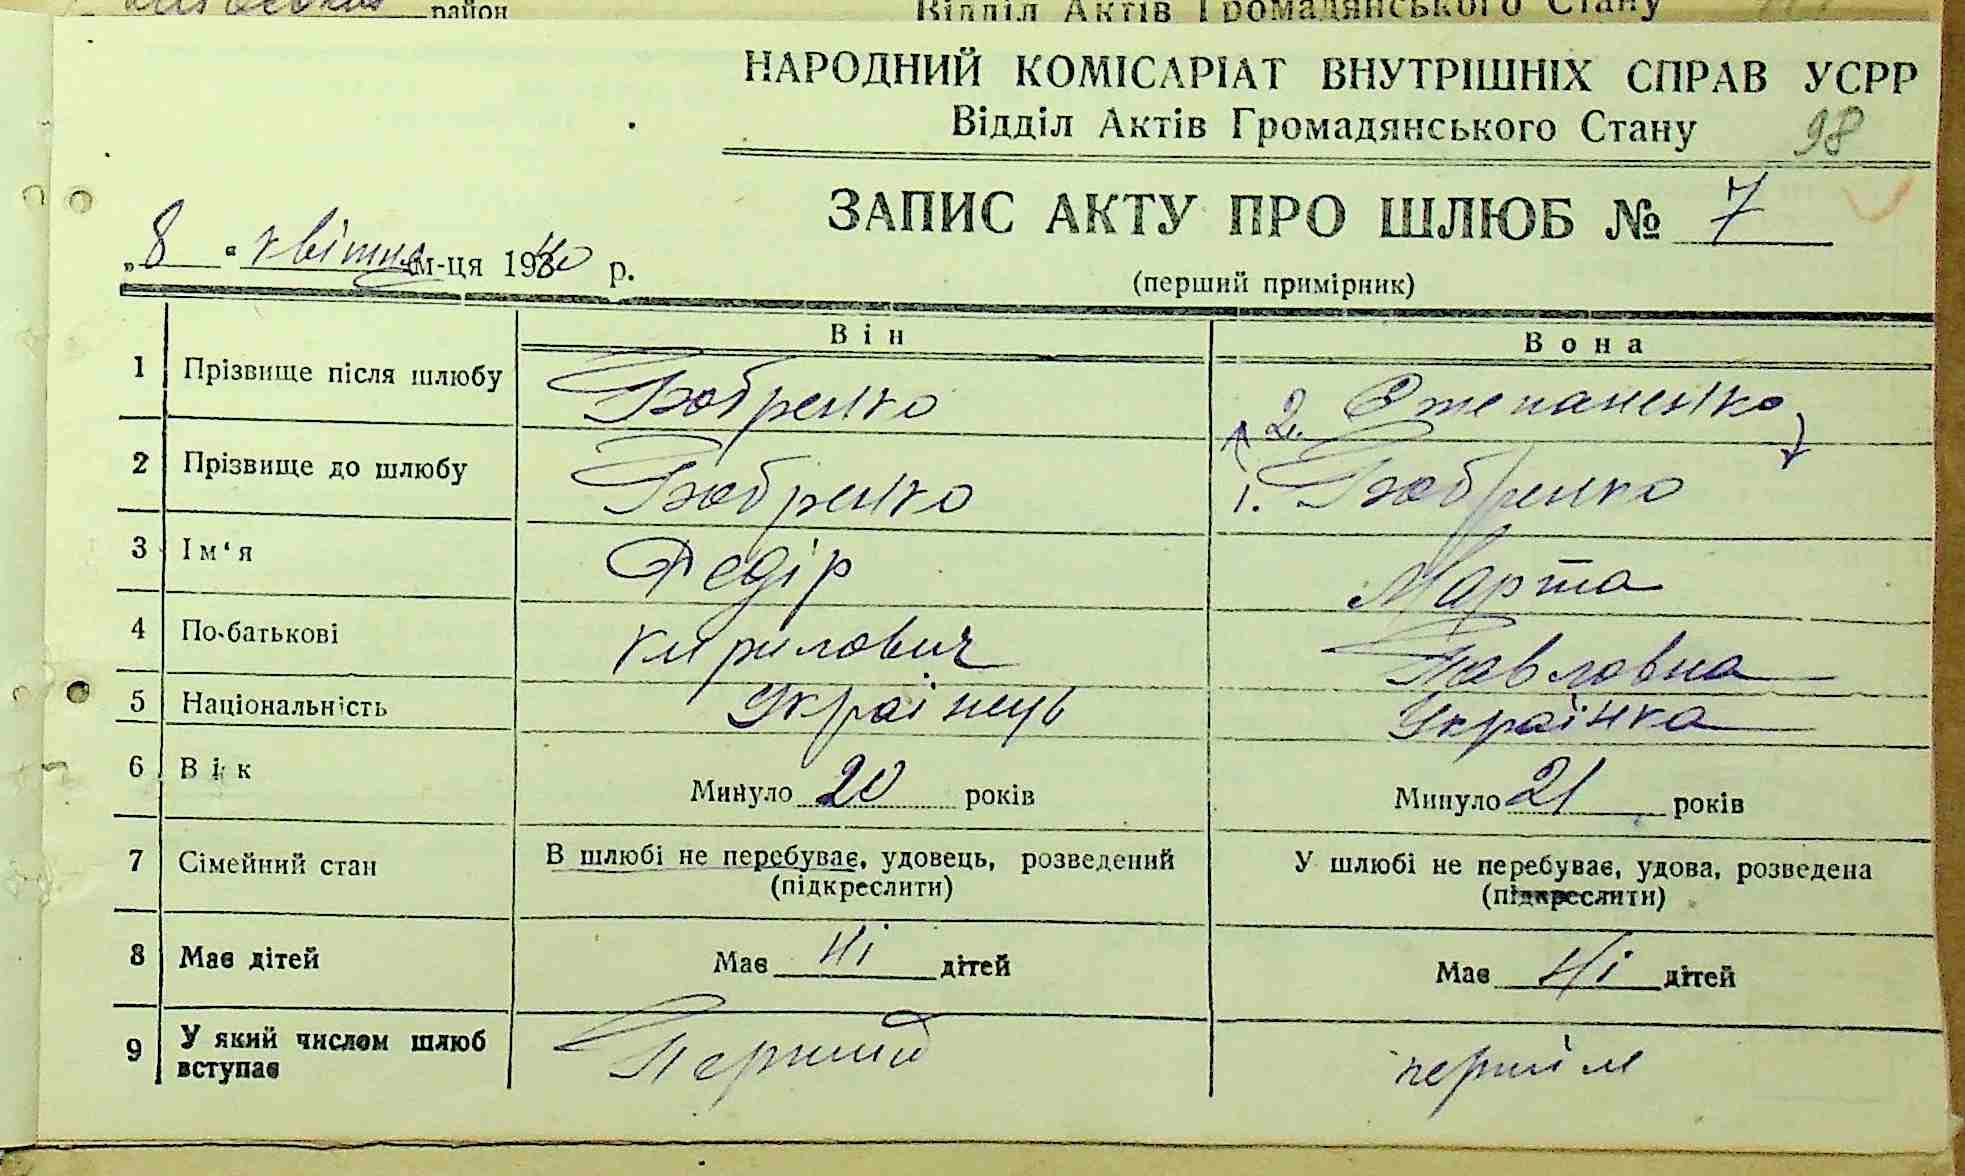 район
Відділ Актів Громадянського Стану
НАРОДНИЙ КОМІСАРІАТ ВНУТРІШНІХ СПРАВ УСРР
Відділ Актів Громадянського Стану 98
ЗАПИС АКТУ ПРО ШЛЮБ № 7
„8“ квітня м-ця 1940 р.
(перший примірник)
Він Вона
1 Прізвище після шлюбу Бобренко 2. Степаненко
2 Прізвище до шлюбу Бобренко 1. Бобренко
3 Ім'я Федір Марта
4 По-батькові Кирилович Павловна
5 Національність Українець Українка
6 Вік Минуло 20 років Минуло 21 років
7 Сімейний стан В шлюбі не перебуває, удовець, розведений У шлюбі не перебуває, удова, розведена
(підкреслити) (підкреслити)
8 Має дітей Має ні дітей Має ні дітей
9 У який числом шлюб вступає Перший первий